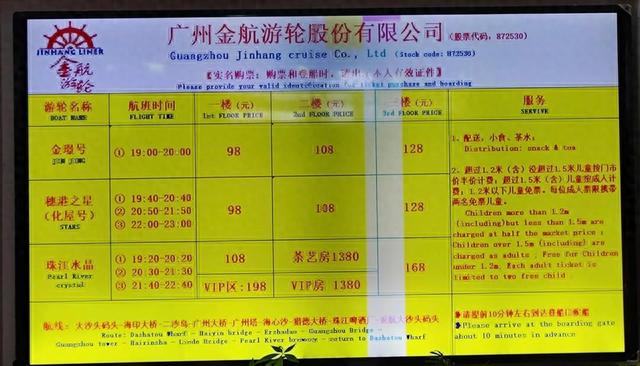 广州金航游轮股份有限公司(股票代码:872530)
JINHANG LINER
金航
游轮
Guangzhou Jinhang cruise Co., Ltd (Stock code:872530)
【实名购票:购票和登船时,请出示本人有效证件】
Please provide your valid identification for ticket purchase and boarding
游轮名称 航班时间 一楼(元) 二楼(元) 三楼(元) 服务
BOAT NAME FLIGHT TIME 1st FLOOR PRICE 2nd FLOOR PRICE 3rd FLOOR PRICE SERVIVE
金璟号
① 19:00-20:00 98 108 128
JIN JING
1、配送:小食、茶水;
Distribution: snack & tea
穗港之星
(化屋号)
STARS
① 19:40-20:40
② 20:50-21:50
③ 22:00-23:00
98 108 128
2、超过1.2米(含)没超过1.5米儿童按门
市价半价计费;超过1.5米(含)儿童按成人计
费;1.2米以下儿童免票。每位成人票限携带
两名免票儿童。
Children more than 1.2m
(including)but less than 1.5m are
charged at half the market price ;
Children over 1.5m (including) are
charged as adults ; Free for Children
under 1.2m, Each adult ticket is
limited to two free child
珠江水晶
Pearl River
crystal
① 19:20-20:20
② 20:30-21:30
③ 21:40-22:40
108 茶艺房1380 168
VIP区:198 VIP房 1380
航线:大沙头码头-海印大桥-二沙岛-广州大桥-广州塔-海心沙-猎德大桥-珠江啤酒厂-返航大沙头码头
Route: Dashatou Wharf - Haiyin bridge - Ershadao - Guangzhou Bridge -
Guangzhou tower - Haixinsha - Liede Bridge - Pearl River brewery - return to Dashatou Wharf
请提前10分钟左右到达登船口候船
Please arrive at the boarding gate
about 10 minutes in advance